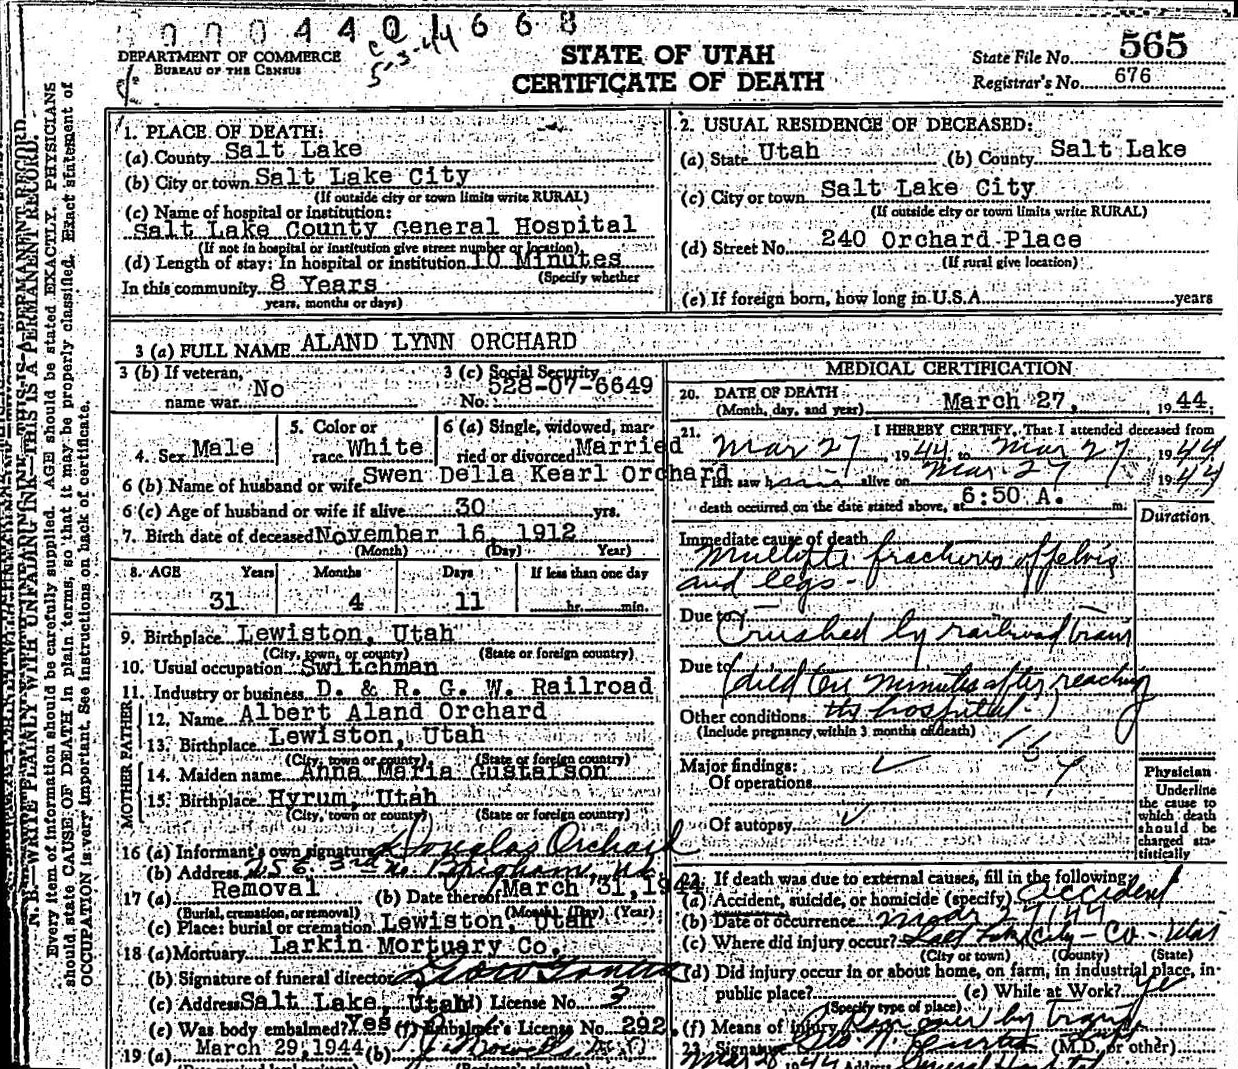 0 0 0 4 4 0 1 6 6 8
5-3-44
DEPARTMENT OF COMMERCE
BUREAU OF THE CENSUS
STATE OF UTAH
CERTIFICATE OF DEATH
State File No. 565
Registrar's No. 676
N. B.—WRITE PLAINLY WITH UNFADING INK—THIS IS A PERMANENT RECORD.
Every item of information should be carefully supplied. AGE should be stated EXACTLY. PHYSICIANS
should state CAUSE OF DEATH in plain terms, so that it may be properly classified. Exact statement of
OCCUPATION is very important. See instructions on back of certificate.
1. PLACE OF DEATH:
(a) County Salt Lake
(b) City or town Salt Lake City
(If outside city or town limits write RURAL)
(c) Name of hospital or institution:
Salt Lake County General Hospital
(If not in hospital or institution give street number or location)
(d) Length of stay: In hospital or institution 10 Minutes
(Specify whether
In this community 8 Years
years, months or days)
2. USUAL RESIDENCE OF DECEASED:
(a) State Utah (b) County Salt Lake
(c) City or town Salt Lake City
(If outside city or town limits write RURAL)
(d) Street No. 240 Orchard Place
(If rural give location)
(e) If foreign born, how long in U.S.A. years
3 (a) FULL NAME ALAND LYNN ORCHARD
3 (b) If veteran, name war No
3 (c) Social Security No. 528-07-6649
4. Sex Male
5. Color or race White
6 (a) Single, widowed, married or divorced Married
6 (b) Name of husband or wife Swen Della Kearl Orchard
6 (c) Age of husband or wife if alive 30 yrs.
7. Birth date of deceased November 16, 1912
(Month) (Day) Year)
8. AGE Years Months Days If less than one day
31 4 11 hr. min.
9. Birthplace Lewiston, Utah
(City, town, or county) (State or foreign country)
10. Usual occupation Switchman
11. Industry or business D. & R. G. W. Railroad
FATHER
12. Name Albert Aland Orchard
13. Birthplace Lewiston, Utah
(City, town or county) (State or foreign country)
MOTHER
14. Maiden name Anna Maria Gustafson
15. Birthplace Hyrum, Utah
(City, town or county) (State or foreign country)
16 (a) Informant's own signature Douglas Orchard
(b) Address 3rd Brigham, Ut
17 (a) Removal (b) Date thereof March 31, 1944
(Burial, cremation, or removal) (Month) (Day) (Year)
(c) Place: burial or cremation Lewiston, Utah
18 (a) Mortuary Larkin Mortuary Co,
(b) Signature of funeral director
(c) Address Salt Lake, Utah (d) License No. 3
(e) Was body embalmed? Yes (f) Embalmer's License No. 292.
19 (a) March 29, 1944 (b)
MEDICAL CERTIFICATION
20. DATE OF DEATH
(Month, day, and year) March 27, 1944.
21. I HEREBY CERTIFY, That I attended deceased from
Mar 27, 1944, to Mar 27 1944
I last saw him alive on Mar. 27 1944
death occurred on the date stated above, at 6:50 A. m.
Duration
Immediate cause of death
Multiple fractures of pelvis
and legs.
Due to Crushed by railroad train
Due to (died ten minutes after reaching
Other conditions the hospital.)
(Include pregnancy within 3 months of death)
Major findings:
Of operations
Of autopsy
Physician
Underline
the cause to
which death
should be
charged sta-
tistically
22. If death was due to external causes, fill in the following:
(a) Accident, suicide, or homicide (specify) Accident
(b) Date of occurrence Mar 27/44
(c) Where did injury occur? Salt Lake City - Co - Utah
(City or town) (County) (State)
(d) Did injury occur in or about home, on farm, in industrial place, in
public place? (e) While at Work? Yes
(Specify type of place)
(f) Means of injury Run over by train
23. Signature Geo. N. Curtis (M.D. or other)
Mar 28 1944 Address General Hospital